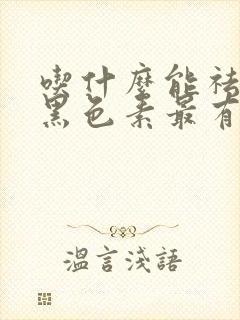 喫什麼能祛
黑色素最有
溫言淺語